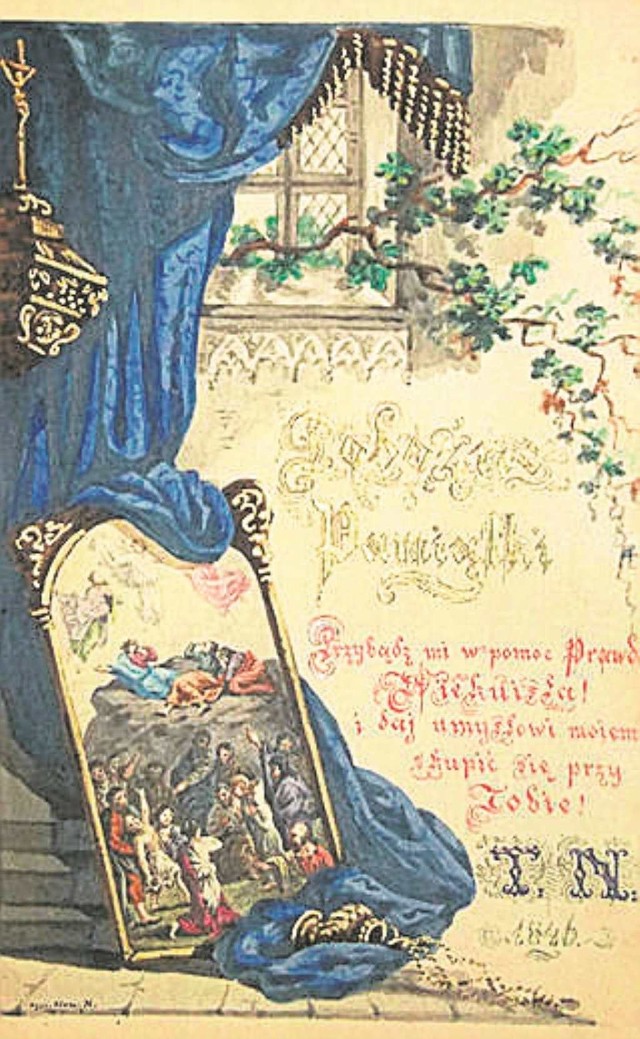 Pamiątki
Przybądź mi w pomoc Prawd
Wiekuista!
i daj umysłowi moiem
skupić się przy
Tobie!
T. N.
1846.